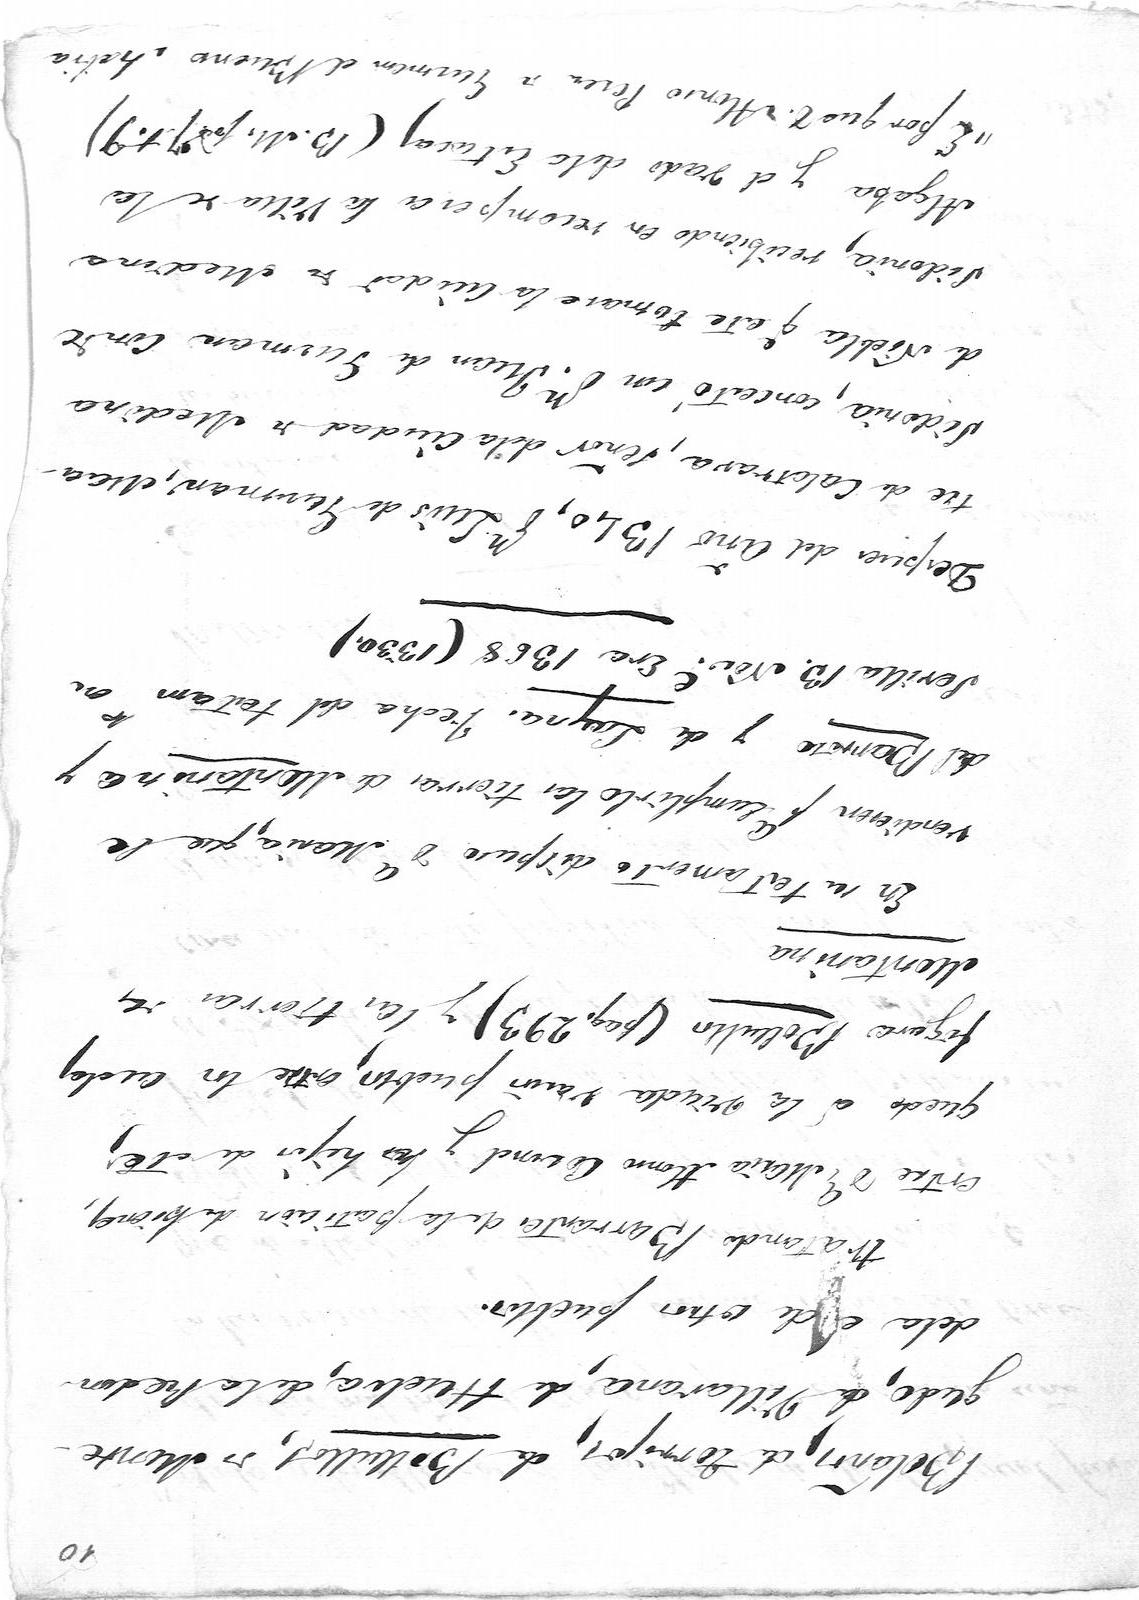 10
Bolaños, de Torrijos, de Bollullos, de Monte-
gudo, de Villarana, de Huelva, de la Redon-
dela e de otros pueblos.
tratando Barrantes de la particion de bienes,
entre Dª Maria Alonso Coronel y los hijos de ella,
quedo á la viuda varios pueblos, entre los cuales,
figura Bolullos (pag. 293) y las tierras de
Montanina
En su testamento dispuso Dª Maria, que se
vendiesen pª cumplirlo las tierras de Montanina y
del Barrero y de Layna. Fecha del testamto en
Sevilla 13. Nov.e Era 1368 (1330.)
Despues del Año de 1340, Dn Luis de Gusman, Maes-
tre de Calatrava, Señor dela Ciudad de Medina
Sidonia, concertó con Dn Juan de Gusman Conde
de Niebla qe este tomase la Ciudad de Medina
Sidonia, recibiendo en recompensa la Villa de la
Algaba y el Vado delas Estacas (B. M. p. 27. t. 9)
"E por que D. Alonso Perez de Gusman el Bueno, habia